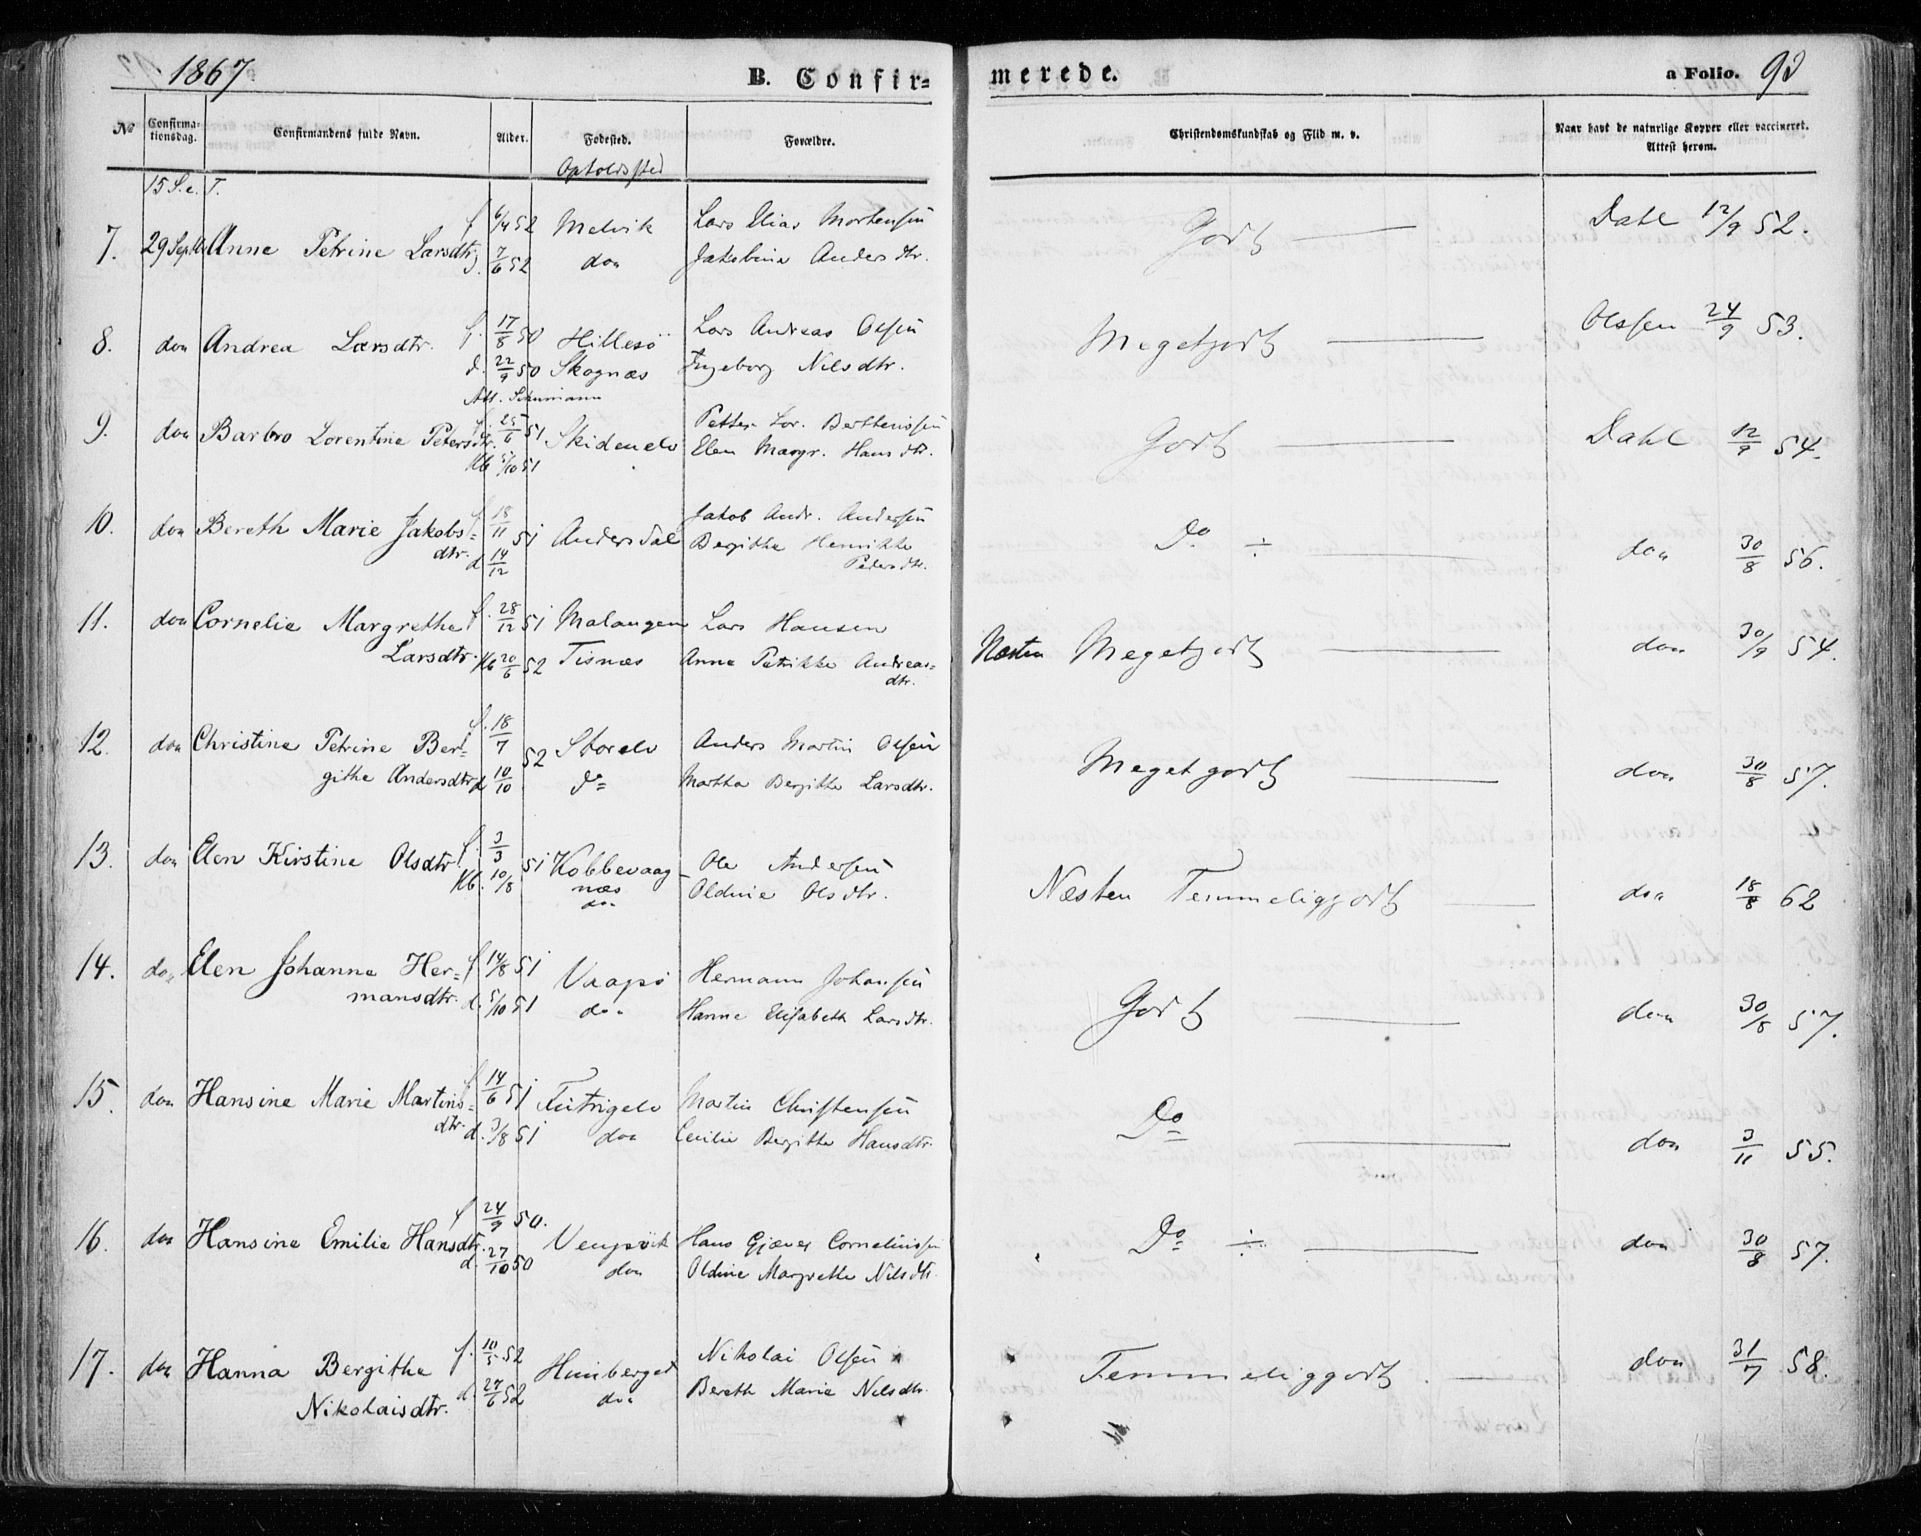 1867.
B. Confir=
merede.
a Folio. 93
No
Confirma-
tionsdag.
Confirmandens fulde Navn.
Alder.
Fødested.
Opholdssted
Forældre.
Christendomskundskab og Flid m. v.
Naar havt de naturlige Kopper eller vaccineret.
Attest herom.
15 S. e. T.
7. 29 Septbr Anne Petrine Larsdtr. f. 6/4 52 Melvik Lars Elias Mortensen Godt — Dahl 12/9 52.
d. 7/6 52 do Jakobine Andersdtr.
8. do Andrea Larsdtr. f. 17/8 50 Hillesö Lars Andreas Olsen Megetgodt — Olssen 24/9 53.
d. 22/9 50 Skognæs Ingeborg Nilsdtr.
Att. Schumann
9. do Barbro Lorentine Petersdtr. f. 25/6 51 Skidenelv Petter Lor. Berthenssen Godt — Dahl 12/9 54.
Kb 5/10 51 Elen Margr. Hansdtr.
10. do Bereth Marie Jakobs= f. 18/11 51 Andersdal Jakob Andr. Andersen Do ÷ do 30/8 56.
dtr. d 14/12 Bergitha Henrikke
Pedersdtr.
11. do Cornelia Margrethe f. 28/12 51 Malangen Lars Hansen Næsten Megetgodt — do 30/9 54.
Larsdtr. Kb 20/6 52 Tisnæs Anne Petrikke Andreas=
dtr.
12. do Christine Petrine Ber= f. 18/7 52 Storelv Anders Martin Olsen Megetgodt — do 30/8 57.
githe Andersdtr. d 10/10 do Martha Bergitha Larsdtr.
13. do Elen Kirstine Olsdtr. f. 3/3 51 Kobbevaag- Ole Andersen Næsten Temmeliggodt — do 18/8 62
Kb. 10/8 næs Oldine Olsdtr.
do
14. do Elen Johanna Her= f 14/8 51 Vaagö Hermann Johansen Godt — do 30/8 57.
mansdtr. d. 5/10 51 do Hanne Elisabeth Larsdtr.
15. do Hansine Marie Martins= f. 14/6 51 Futrigelv Martin Christensen Do — do 3/11 55.
dtr. d. 3/8 51 do Cecilie Bergitha Hansdtr.
16. do Hansine Emilie Hansdtr. f 24/9 50. Vengsöik Hans Gjæver Corneliussen Do ÷ — do 30/8 57.
d. 27/10 50 do Oldine Margrethe Nilsdtr.
17. do Hanna Bergitha f. 10/5 52 Nikolai Olsen Temmeliggodt. — do 31/7 58.
Nikolaisdtr. d 27/6 52 do Bereth Marie Nilsdtr.